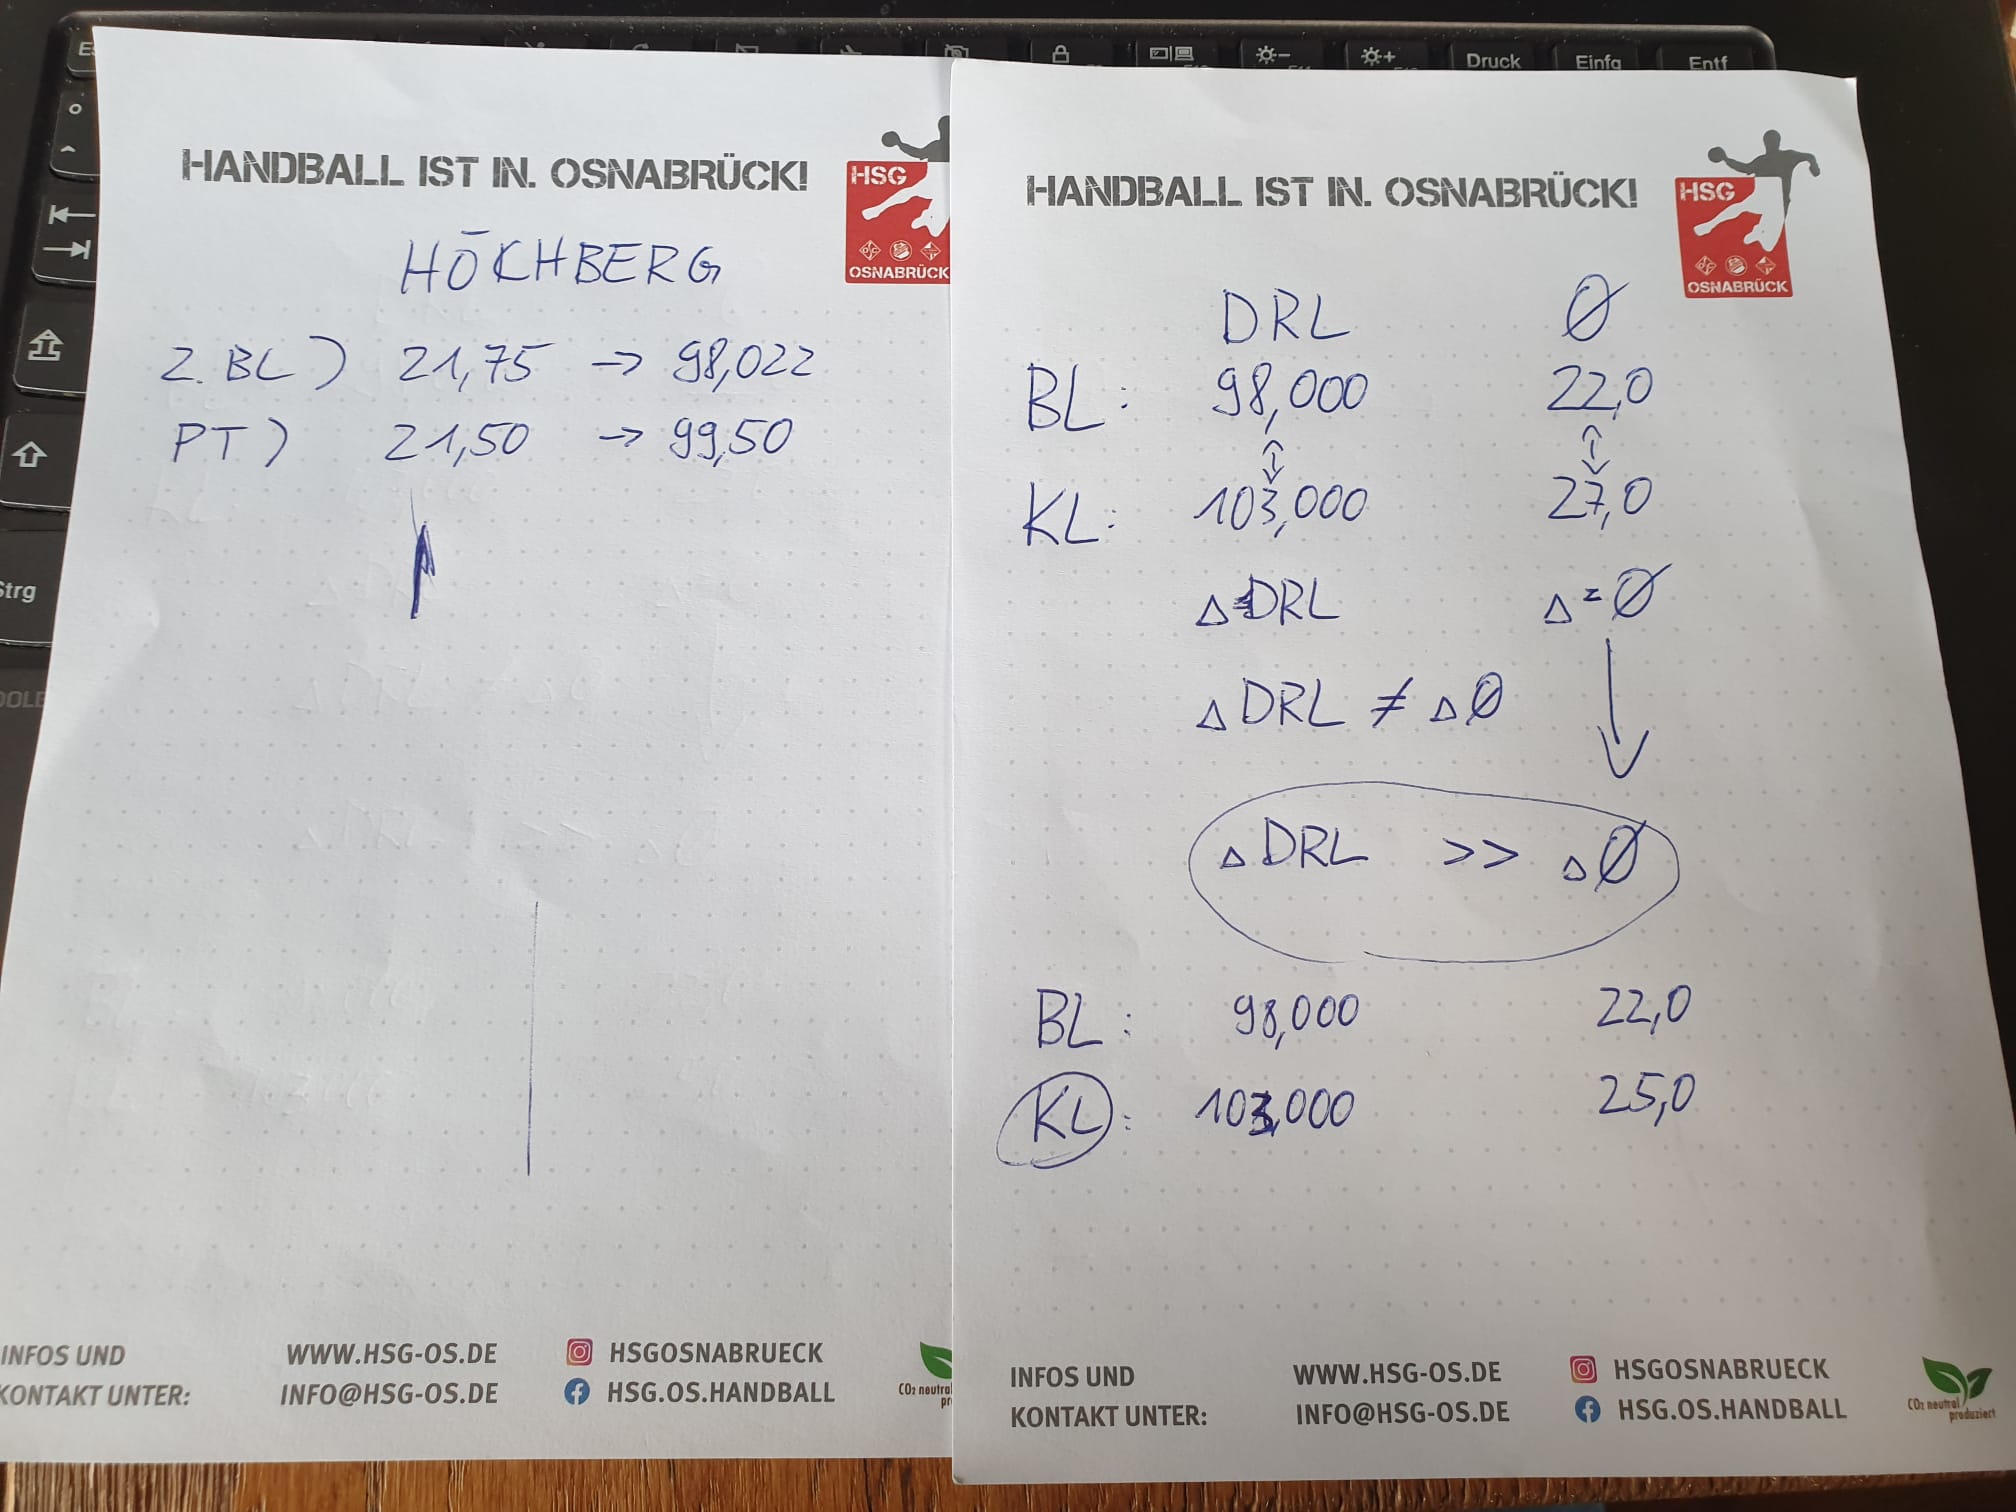 Druck
Einfg
Entf
Strg
HANDBALL IST IN. OSNABRÜCK!
HSG
OSNABRÜCK
HÖCHBERG
2. BL) 21,75 → 98,022
PT) 21,50 → 99,50
INFOS UND
KONTAKT UNTER:
WWW.HSG-OS.DE
INFO@HSG-OS.DE
HSGOSNABRUECK
HSG.OS.HANDBALL
CO₂ neutral
HANDBALL IST IN. OSNABRÜCK!
HSG
OSNABRÜCK
DRL Ø
BL: 98,000 22,0
KL: 103,000 27,0
Δ DRL Δ = Ø
Δ DRL ≠ Δ Ø
Δ DRL >> Δ Ø
BL: 98,000 22,0
KL: 103,000 25,0
INFOS UND
KONTAKT UNTER:
WWW.HSG-OS.DE
INFO@HSG-OS.DE
HSGOSNABRUECK
HSG.OS.HANDBALL
CO₂ neutral
produziert